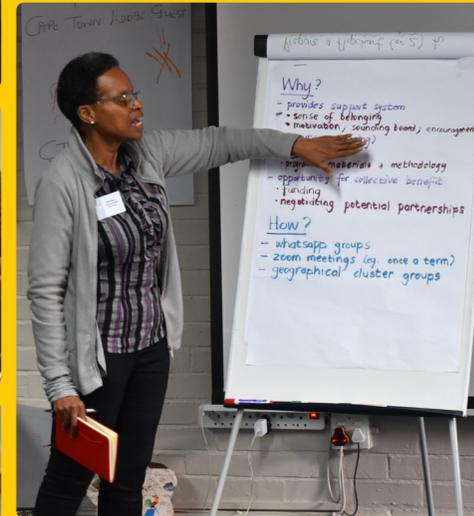 CAPE TOWN LODGE GUEST
Why?
- provides support system
• sense of belonging
• motivation, sounding board, encouragement
materials + methodology
- opportunity for collective benefit
• funding
• negotiating potential partnerships
How?
- whatsapp groups
- zoom meetings (eg. once a term?)
- geographical cluster groups